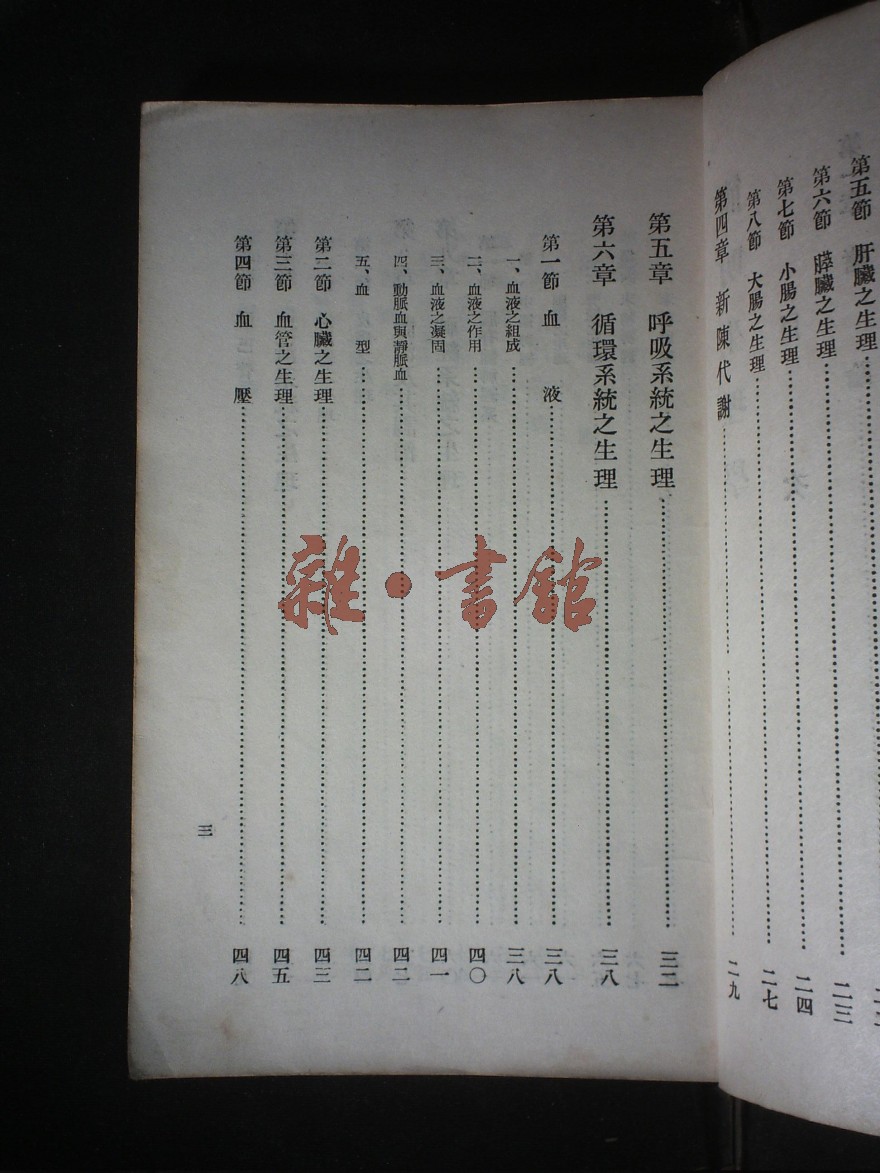 第五節　肝臟之生理
第六節　膵臟之生理……二三
第七節　小腸之生理……二四
第八節　大腸之生理……二七
第四章　新陳代謝……二九
第五章　呼吸系統之生理……三二
第六章　循環系統之生理……三八
第一節　血　液……三八
一、血液之組成……三八
二、血液之作用……四〇
三、血液之凝固……四一
四、動脈血與靜脈血……四二
五、血　型……四二
第二節　心臟之生理……四三
第三節　血管之生理……四五
第四節　血　壓……四八
三
雜·書館